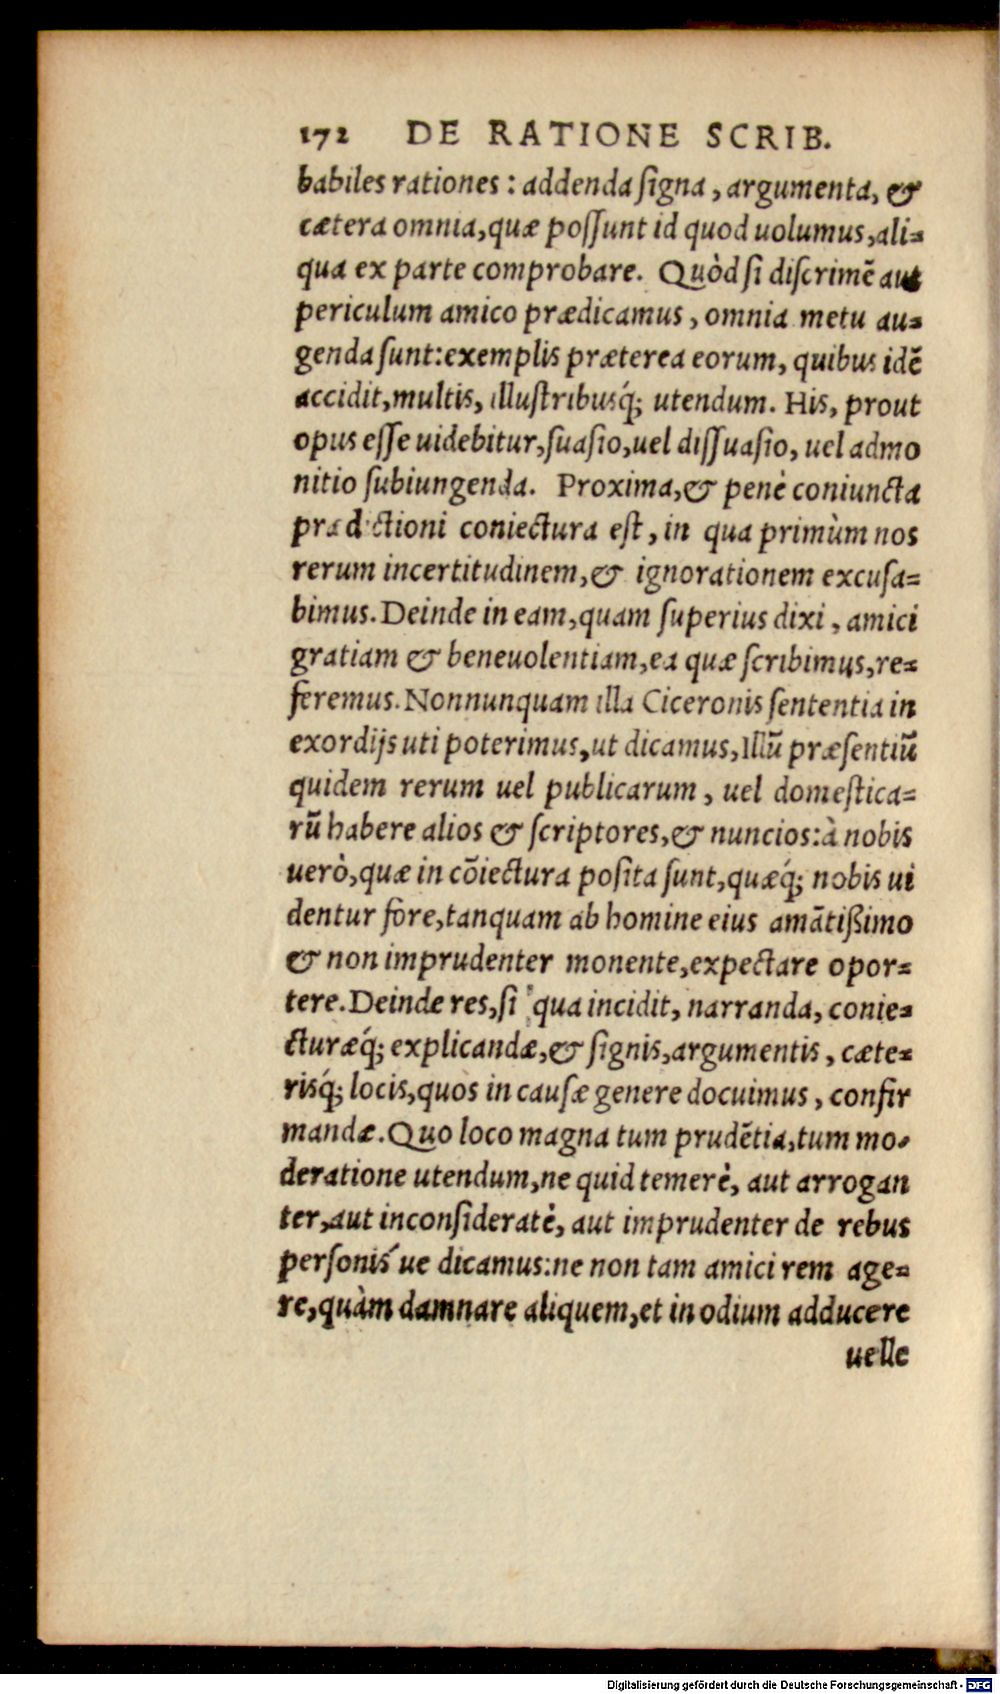 172 DE RATIONE SCRIB.
babiles rationes : addenda ſigna , argumenta, &
cætera omnia,quæ poſſunt id quod uolumus,ali=
qua ex parte comprobare. Quòd ſi diſcrimẽ aut
periculum amico prædicamus , omnia metu au=
genda ſunt:exemplis præterea eorum, quibus idẽ
accidit,multis, illuſtribusq́; utendum. His, prout
opus eſſe uidebitur,ſuaſio,uel diſſuaſio, uel admo
nitio ſubiungenda. Proxima,& penè coniuncta
prædictioni coniectura eſt , in qua primùm nos
rerum incertitudinem,& ignorationem excuſa=
bimus. Deinde in eam,quam ſuperius dixi , amici
gratiam & beneuolentiam,ea quæ ſcribimus,re=
feremus. Nonnunquam illa Ciceronis ſententia in
exordijs uti poterimus,ut dicamus,Illũ præſentiũ
quidem rerum uel publicarum , uel domeſtica=
rũ habere alios & ſcriptores,& nuncios:à nobis
uerò,quæ in cõiectura poſita ſunt,quæq́; nobis ui
dentur fore,tanquam ab homine eius amãtißimo
& non imprudenter monente,expectare opor=
tere. Deinde res,ſi qua incidit, narranda, conie=
cturæq́; explicandæ,& ſignis,argumentis , cæte=
risq́; locis,quos in cauſæ genere docuimus , confir
mandæ. Quo loco magna tum prudẽtia,tum mo=
deratione utendum,ne quid temerè, aut arrogan
ter,aut inconſideratè, aut imprudenter de rebus
perſonis´ue dicamus:ne non tam amici rem age=
re,quàm damnare aliquem,et in odium adducere
uelle
Digitalisierung gefördert durch die Deutsche Forschungsgemeinschaft - DFG